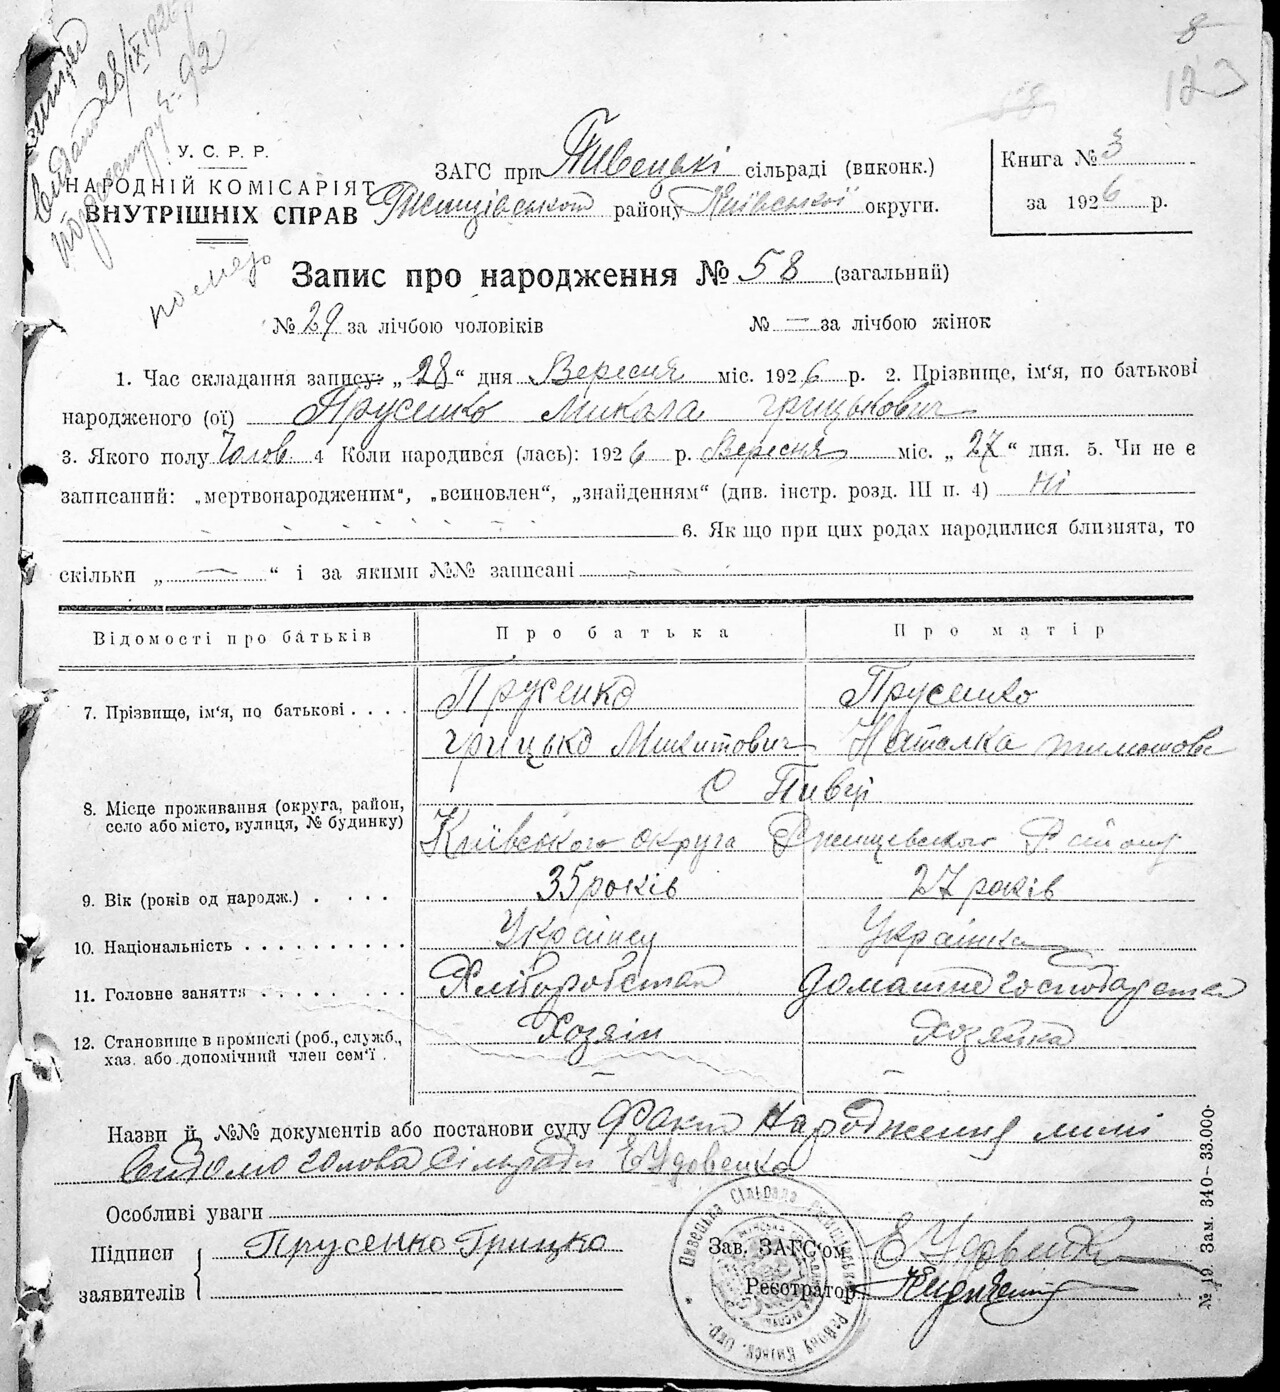 8
123
58
видано 28/IX 1926 р.
У. С. Р. Р.
НАРОДНІЙ КОМІСАРІЯТ
ВНУТРІШНІХ СПРАВ
ЗАГС при Пивецькі сільраді (виконк.)
Ржищівського району Київської округи.
Книга № 3
за 1926 р.
Запис про народження № 58 (загальний)
№ 29 за лічбою чоловіків № — за лічбою жінок
1. Час складання запису: „28“ дня Вересня міс. 1926 р. 2. Прізвище, ім'я, по батькові
народженого (ої) Прусенко Микола Грицькович
3. Якого полу Чолов. 4 Коли народився (лась): 1926 р. Вересня міс. „27“ дня. 5. Чи не є
записаний: „мертвонародженим“, „всиновлен“, „знайденням“ (див. інстр. розд. III п. 4) Ні
6. Як що при цих родах народилися близнята, то
скільки „ — “ і за якими №№ записані
Відомості про батьків Про батька Про матір
7. Прізвище, ім'я, по батькові . . . . Прусенко Прусенко
Грицько Микитович Наталка Тимошов
С Пивці
8. Місце проживання (округа, район,
село або місто, вулиця, № будинку)
Київського округа Ржищевского Району
9. Вік (років од народж.) . . . . . 35 років 27 років
10. Національність . . . . . . . . . . Українец Українка
11. Головне заняття . . . . . . . . . Хлиборобство Домашне господарство
12. Становище в промислі (роб., служб., Хозяін Хозяйка
хаз. або допомічний член сем'ї .
— —
Назви й №№ документів або постанови суду Факт Народження мині
Відомо голова Сільради Е Удовенко
Особливі уваги
Підписи
заявителів
Прусенко Грицко
Зав. ЗАГС'ом Е Удовенко
Реєстратор
Пивецька Сільрада Району Київск. Окр.
№ 19. Зам. 340–33.000.